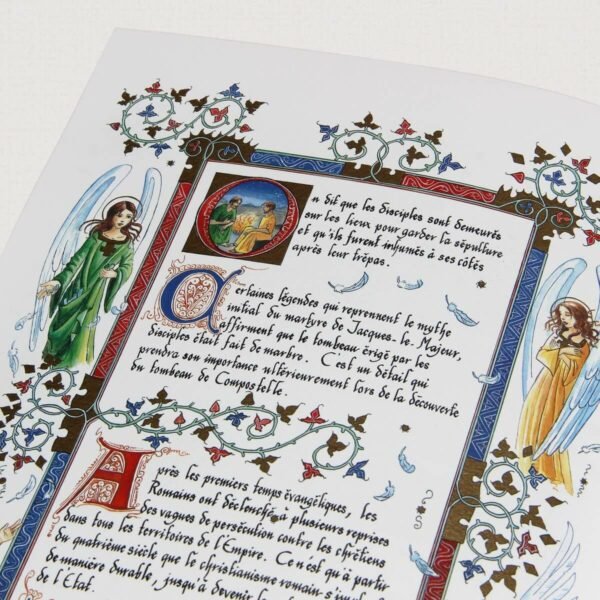 On dit que les disciples sont demeurés
sur les lieux pour garder la sépulture
et qu'ils furent inhumés à ses côtés
après leur trépas.
Certaines légendes qui reprennent le mythe
initial du martyre de Jacques-le-Majeur,
affirment que le tombeau érigé par les
disciples était fait de marbre. C'est un détail qui
prendra son importance ultérieurement lors de la découverte
du tombeau de Compostelle.
Après les premiers temps évangéliques, les
Romains ont déclenché à plusieurs reprises
des vagues de persécution contre les chrétiens
dans tous les territoires de l'Empire. Ce n'est qu'à partir
du quatrième siècle que le christianisme romain
de manière durable, jusqu'à devenir la
de l'État.